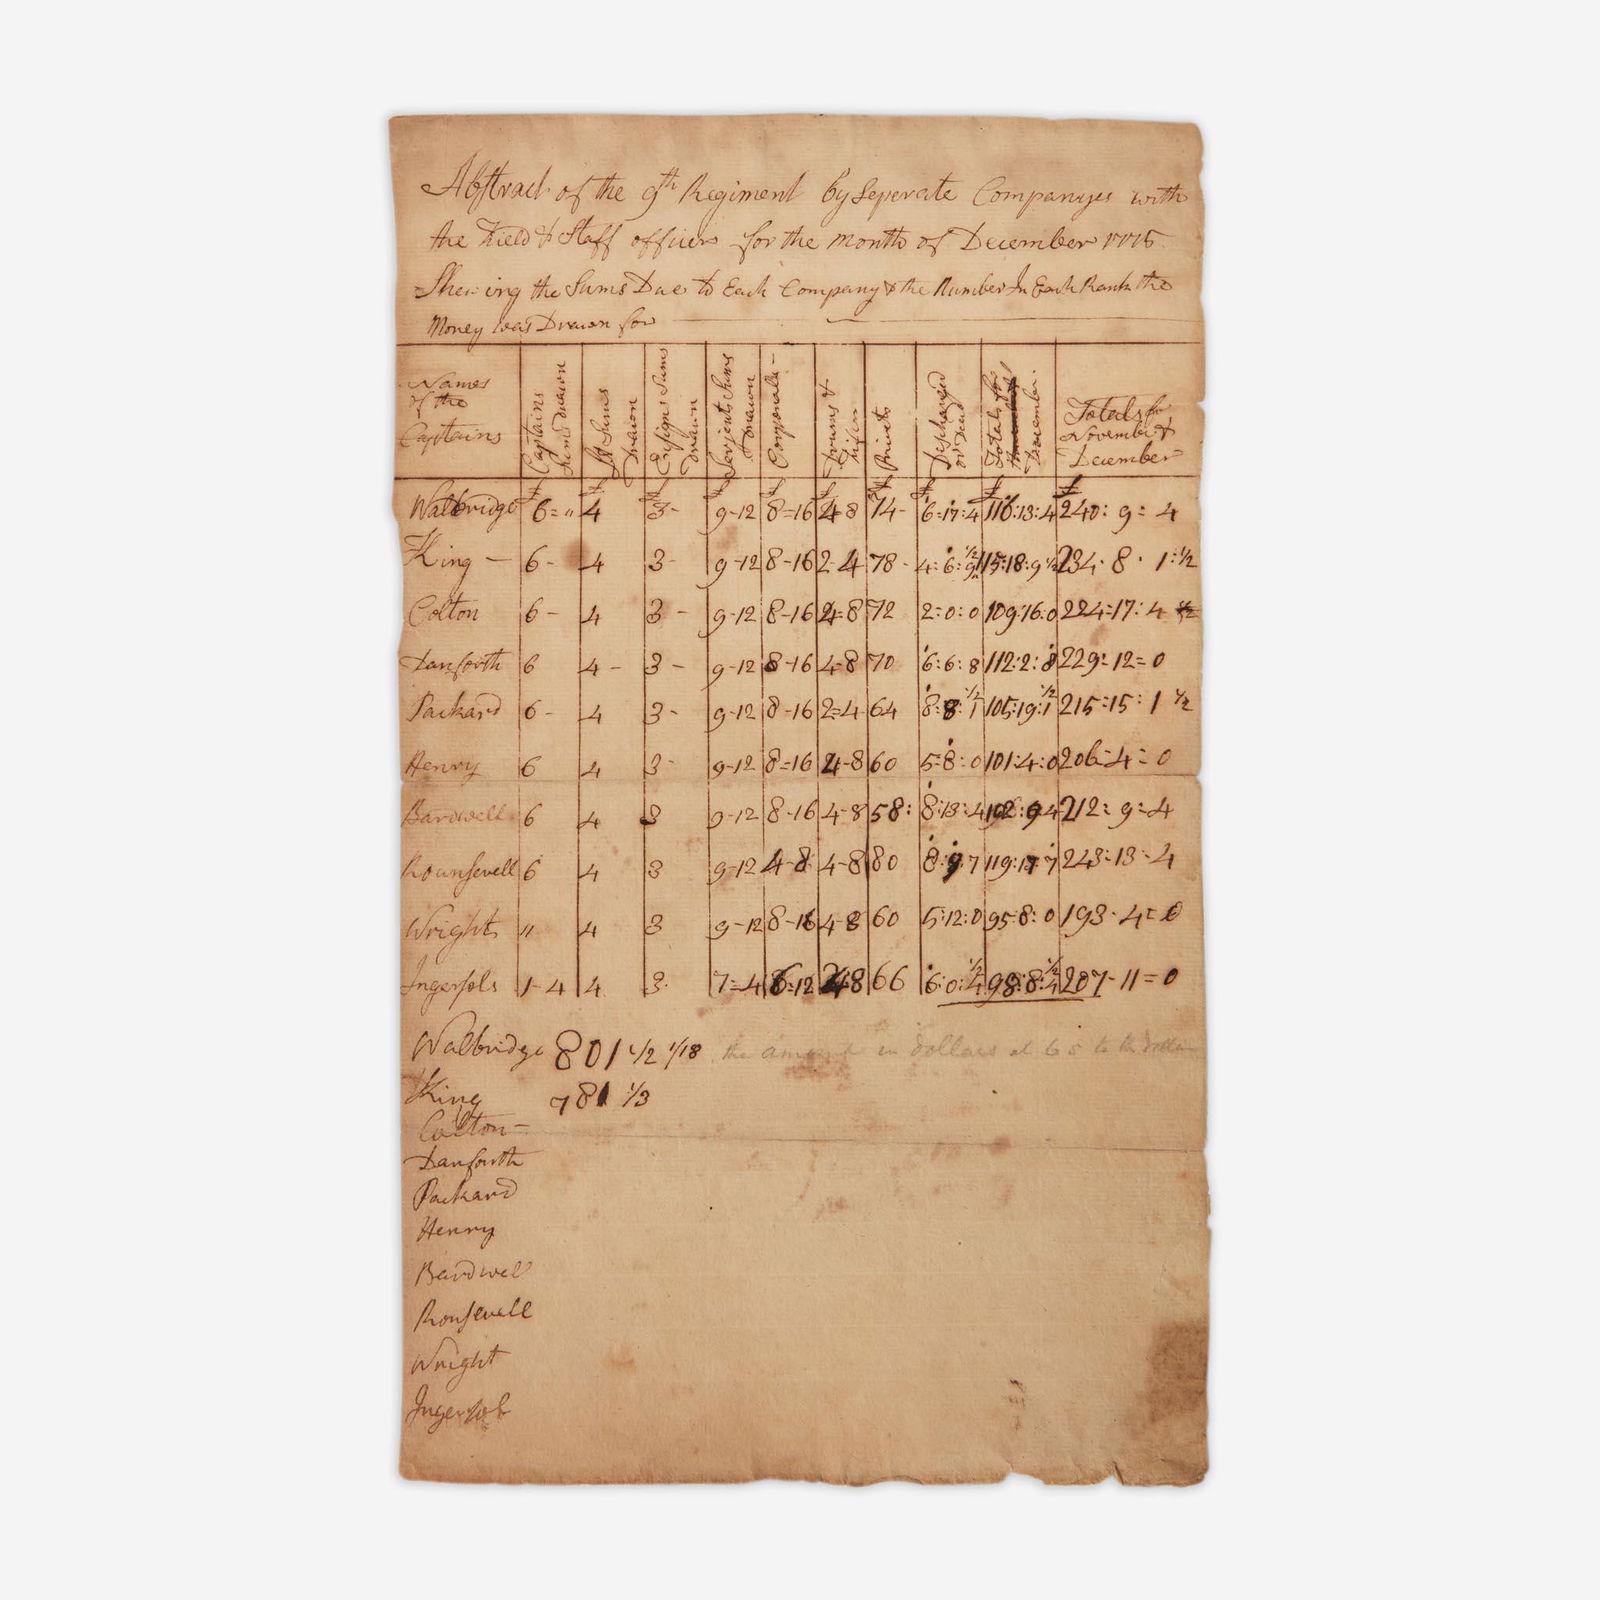 Abstract of the 9th Regiment by Seperate Companyes with
the Field & Staff officers for the month of December 1775.
Shewing the Sums Due to Each Company & the Number In Each Rank the
Money was Drawn for
Names of the Captains | Captains Sums drawn | Lt Sums Drawn | Ensigns Sums Drawn | Serjents Sums Drawn | Corporals - | Drums & Fifers | Privets | Discharged or Dead | Totals for December. | Totals for November & December
Walbridge 6=" 4 3- 9-12 8=16 4-8 74- 6:17:4 116:13:4 240: 9= 4
King - 6- 4 3- 9-12 8-16 2-4 78- 4:6:9 1/2 115:18:9 1/2 234. 8. 1:1/2
Colton 6- 4 3- 9-12 8-16 4-8 72 2:0:0 109:16:0 224:17:4
Danforth 6 4- 3- 9-12 8-16 4-8 70 6:6:8 112:2:8 229:12=0
Packard 6- 4 3- 9-12 8-16 2=4 64 8:8:1 1/2 105:19:1 1/2 215=15:1 1/2
Henry 6 4 3- 9-12 8=16 4-8 60 5:8:0 101:4:0 206=4=0
Bardwell 6 4 3 9-12 8-16 4-8 58: 8:13:4 102:9:4 212:9=4
Rounsevell 6 4 3 9-12 4-8 4-8 80 8:9:7 119:17:7 243=13-4
Wright " 4 3 9-12 8-16 4-8 60 5:12:0 95:8:0 193-4=0
Ingersols 1-4 4 3. 7=4 6=12 4-8 66 6:0:4 1/2 98:8:4 1/2 207-11=0
Walbridge 801 1/2 1/18 the amount in dollars at 6s to the Dollar
King 781 1/3
Colton -
Danforth
Packard
Henry
Bardwel
Ronsevell
Wright
Ingersol